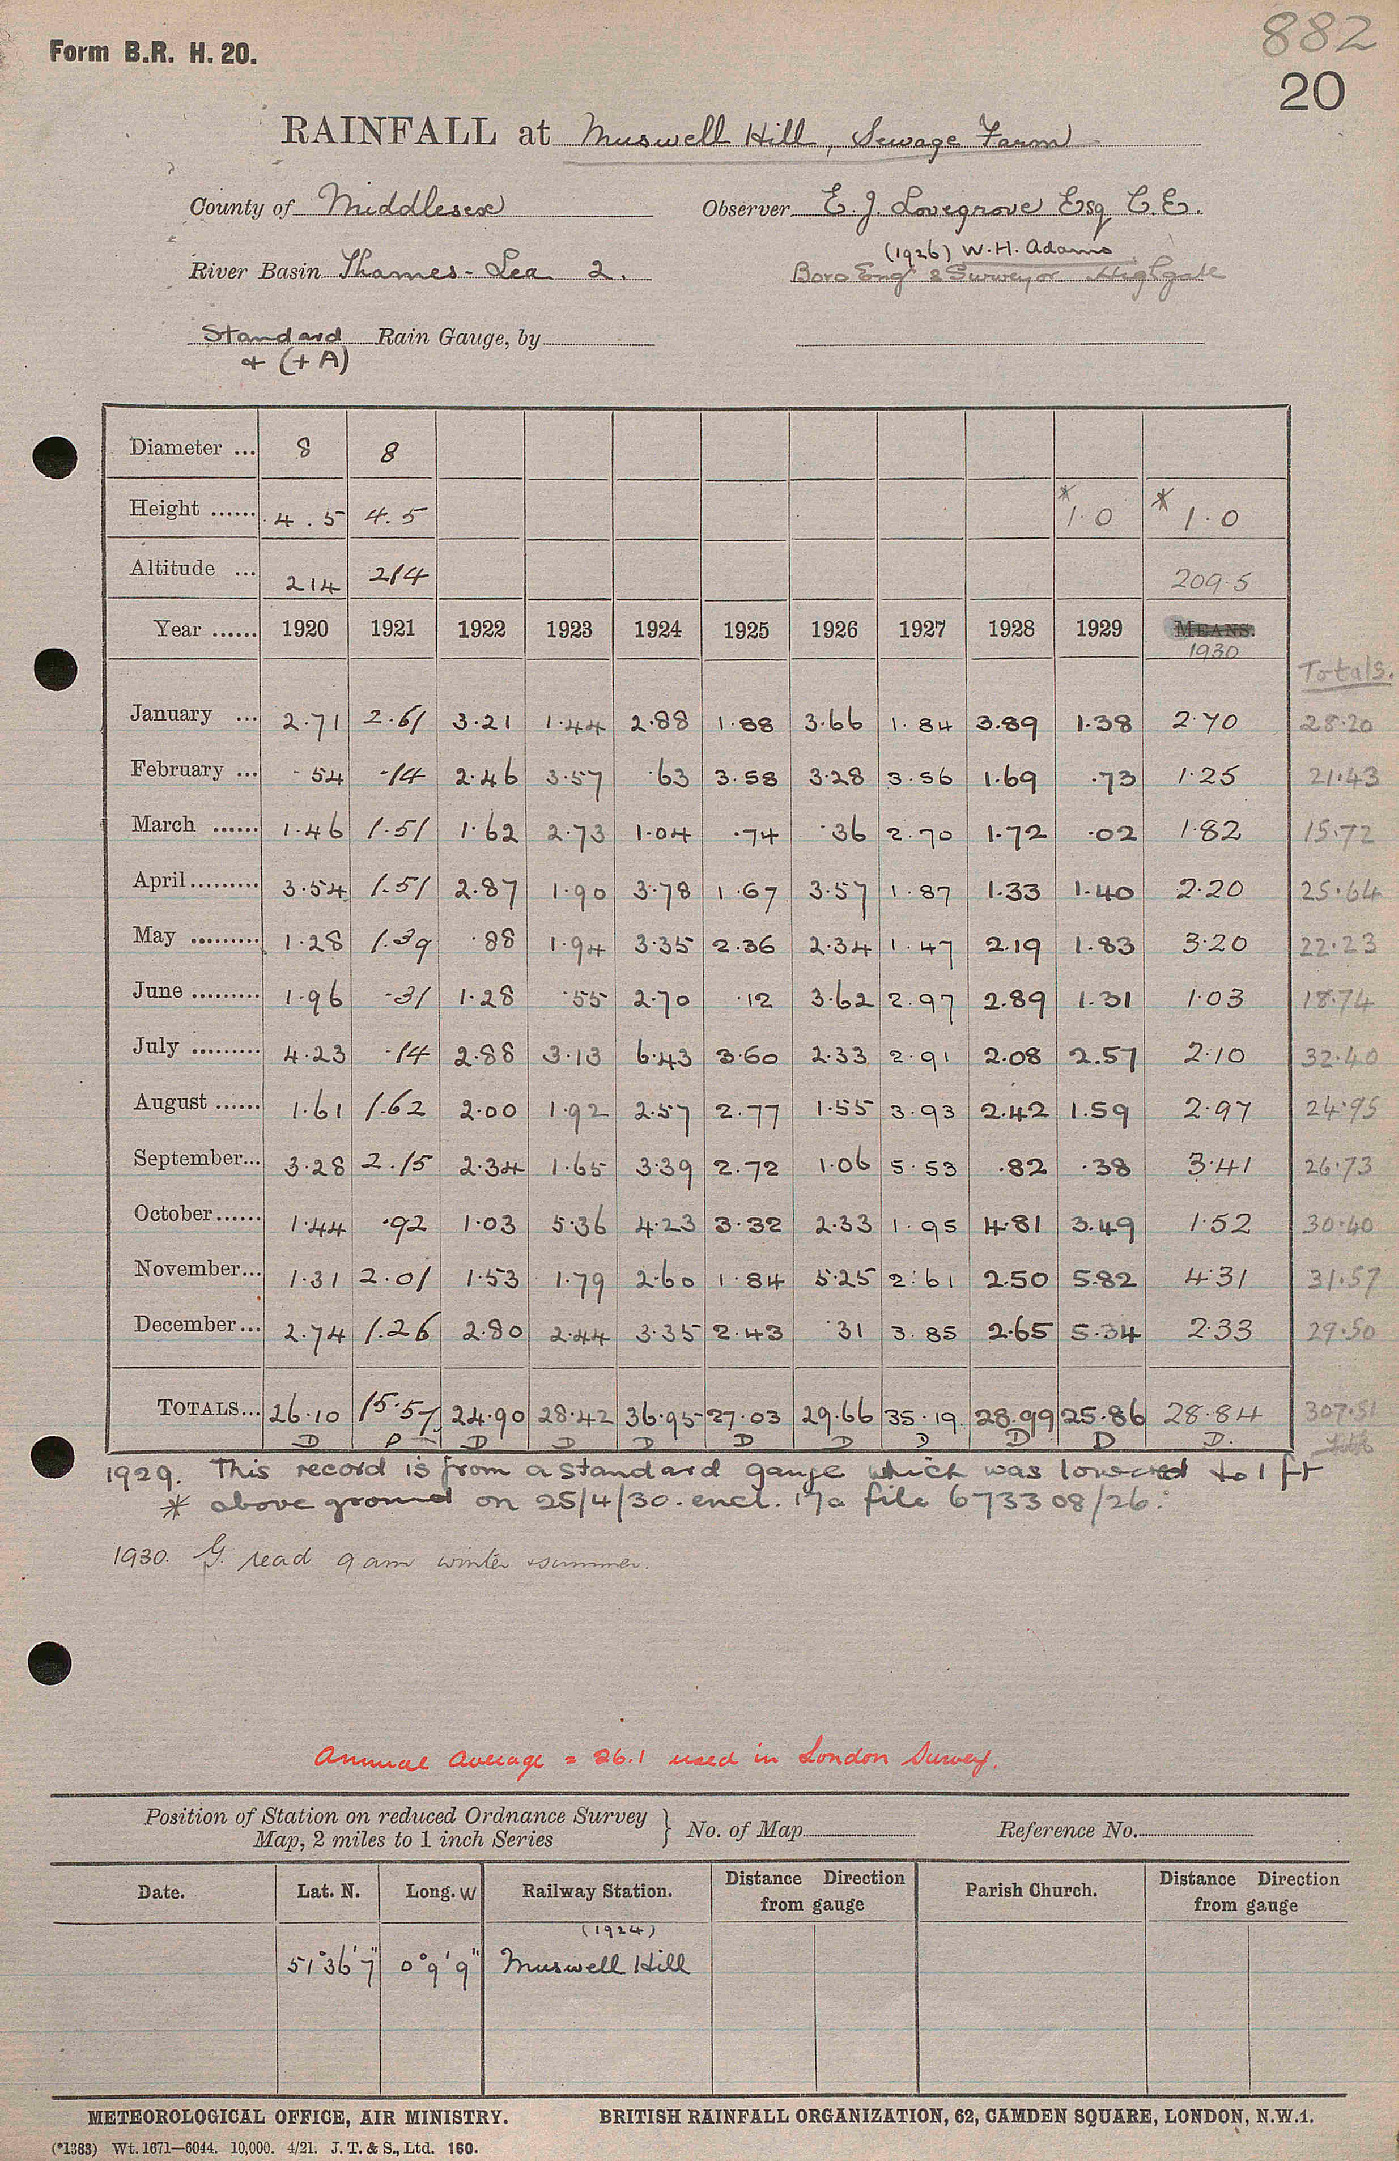 882
Form B.R. H. 20.
20
RAINFALL at Muswell Hill, Sewage Farm
County of Middlesex Observer E. J. Lovegrove Esq C.E.
(1926) W.H. Adams
River Basin Thames - Lea 2. Boro Engr & Surveyor Highgate
Standard Rain Gauge, by
+ (+ A)
Diameter ... 8 8
Height ...... 4.5 4.5 * 1.0 * 1.0
Altitude ... 214 214 209.5
Year ...... 1920 1921 1922 1923 1924 1925 1926 1927 1928 1929 MEANS.
1930
Totals.
January ... 2.71 2.61 3.21 1.44 2.88 1.88 3.66 1.84 3.89 1.38 2.70 28.20
February ... .54 .14 2.46 3.57 .63 3.58 3.28 3.56 1.69 .73 1.25 21.43
March ...... 1.46 1.51 1.62 2.73 1.04 .74 .36 2.70 1.72 .02 1.82 15.72
April ......... 3.54 1.51 2.87 1.90 3.78 1.67 3.57 1.87 1.33 1.40 2.20 25.64
May ......... 1.28 1.39 .88 1.94 3.35 2.36 2.34 1.47 2.19 1.83 3.20 22.23
June ......... 1.96 .31 1.28 .55 2.70 .12 3.62 2.97 2.89 1.31 1.03 18.74
July ......... 4.23 .14 2.88 3.13 6.43 3.60 2.33 2.91 2.08 2.57 2.10 32.40
August ...... 1.61 1.62 2.00 1.92 2.57 2.77 1.55 3.93 2.42 1.59 2.97 24.95
September... 3.28 2.15 2.34 1.65 3.39 2.72 1.06 5.53 .82 .38 3.41 26.73
October ...... 1.44 .92 1.03 5.36 4.23 3.32 2.33 1.95 4.81 3.49 1.52 30.40
November... 1.31 2.01 1.53 1.79 2.60 1.84 5.25 2.61 2.50 5.82 4.31 31.57
December... 2.74 1.26 2.80 2.44 3.35 2.43 .31 3.85 2.65 5.34 2.33 29.50
TOTALS... 26.10 15.57 24.90 28.42 36.95 27.03 29.66 35.19 28.99 25.86 28.84 307.51
D D D D D D D D D D D.
1929. This record is from a standard gauge which was lowered to 1 ft
* above ground on 25/4/30. encl. 17a file 673308/26.
1930. G. read 9 am winter & summer.
Annual average = 26.1 used in London Survey.
Position of Station on reduced Ordnance Survey
Map, 2 miles to 1 inch Series } No. of Map Reference No.
Date. Lat. N. Long. W Railway Station. Distance Direction from gauge Parish Church. Distance Direction from gauge
(1924)
51°36'7" 0°9'9" Muswell Hill
METEOROLOGICAL OFFICE, AIR MINISTRY. BRITISH RAINFALL ORGANIZATION, 62, CAMDEN SQUARE, LONDON, N.W.1.
(*1383) Wt. 1671—6044. 10,000. 4/21. J. T. & S., Ltd. 160.